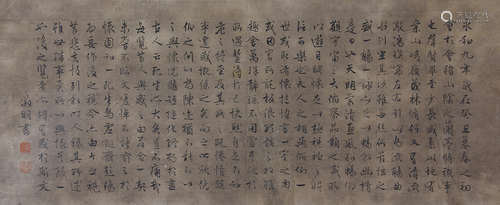 永和九年歲在癸丑暮春之初
會于會稽山陰之蘭亭脩稧事
也群賢畢至少長咸集此地有
崇山峻領茂林脩竹又有清流激
湍暎帶左右引以為流觴曲水
列坐其次雖無絲竹管弦之
盛一觴一詠亦足以暢敘幽情
是日也天朗氣清惠風和暢仰
觀宇宙之大俯察品類之盛所
以遊目騁懷足以極視聽之娛
信可樂也夫人之相與俯仰一
世或取諸懷抱悟言一室之內
或因寄所託放浪形骸之外雖
趣舍萬殊靜躁不同當其欣
於所遇暫得於己快然自足不知
老之將至及其所之既惓情隨
事遷感慨係之矣向之所欣俛
仰之間以為陳迹猶不能不以
之興懷況脩短隨化終期於盡
古人云死生亦大矣豈不痛哉
每攬昔人興感之由若合一契
未嘗不臨文嗟悼不能喻之於
懷固知一死生為虛誕齊彭殤
為妄作後之視今亦由今之視
昔悲夫故列敘時人錄其所述
雖世殊事異所以興懷其致一
也後之攬者亦將有感於斯文
徵明書